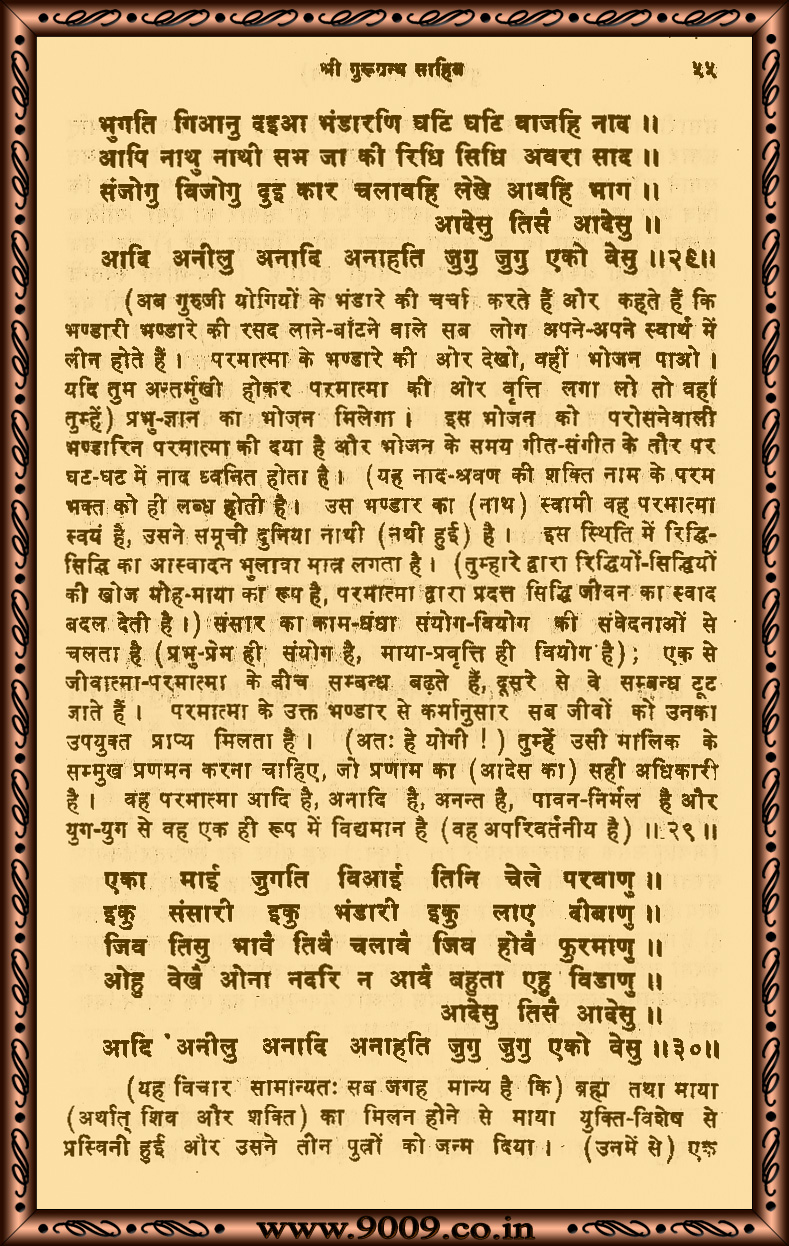 श्री गुरूग्रन्थ साहिब ५५
भुगति गिआनु दइआ भंडारणि घटि घटि वाजहि नाद ॥
आपि नाथु नाथी सभ जा की रिधि सिधि अवरा साद ॥
संजोगु विजोगु दुइ कार चलावहि लेखे आवहि भाग ॥
आदेसु तिसै आदेसु ॥
आदि अनीलु अनादि अनाहति जुगु जुगु एको वेसु ॥२९॥
(अब गुरुजी योगियों के भंडारे की चर्चा करते हैं और कहते हैं कि
भण्डारी भण्डारे की रसद लाने-बाँटने वाले सब लोग अपने-अपने स्वार्थ में
लीन होते हैं। परमात्मा के भण्डारे की ओर देखो, वहीं भोजन पाओ।
यदि तुम अन्तर्मुखी होकर परमात्मा की ओर वृत्ति लगा लो तो वहाँ
तुम्हें) प्रभु-ज्ञान का भोजन मिलेगा। इस भोजन को परोसनेवाली
भण्डारिन परमात्मा की दया है और भोजन के समय गीत-संगीत के तौर पर
घट-घट में नाद ध्वनित होता है। (यह नाद-श्रवण की शक्ति नाम के परम
भक्त को ही लब्ध होती है। उस भण्डार का (नाथ) स्वामी वह परमात्मा
स्वयं है, उसने समूची दुनिया नाथी (नथी हुई) है। इस स्थिति में रिद्धि-
सिद्धि का आस्वादन भुलावा मात्र लगता है। (तुम्हारे द्वारा रिद्धियों-सिद्धियों
की खोज मोह-माया का रूप है, परमात्मा द्वारा प्रदत्त सिद्धि जीवन का स्वाद
बदल देती है।) संसार का काम-धंधा संयोग-वियोग की संवेदनाओं से
चलता है (प्रभु-प्रेम ही संयोग है, माया-प्रवृत्ति ही वियोग है); एक से
जीवात्मा-परमात्मा के बीच सम्बन्ध बढ़ते हैं, दूसरे से वे सम्बन्ध टूट
जाते हैं। परमात्मा के उक्त भण्डार से कर्मानुसार सब जीवों को उनका
उपयुक्त प्राप्य मिलता है। (अतः हे योगी !) तुम्हें उसी मालिक के
सम्मुख प्रणमन करना चाहिए, जो प्रणाम का (आदेस का) सही अधिकारी
है। वह परमात्मा आदि है, अनादि है, अनन्त है, पावन-निर्मल है और
युग-युग से वह एक ही रूप में विद्यमान है (वह अपरिवर्तनीय है) ॥२९॥
एका माई जुगति विआई तिनि चेले परवाणु ॥
इकु संसारी इकु भंडारी इकु लाए दीबाणु ॥
जिव तिसु भावै तिवै चलावै जिव होवै फुरमाणु ॥
ओहु वेखै ओना नदरि न आवै बहुता एहु विडाणु ॥
आदेसु तिसै आदेसु ॥
आदि अनीलु अनादि अनाहति जुगु जुगु एको वेसु ॥३०॥
(यह विचार सामान्यतः सब जगह मान्य है कि) ब्रह्म तथा माया
(अर्थात् शिव और शक्ति) का मिलन होने से माया युक्ति-विशेष से
प्रस्विनी हुई और उसने तीन पुत्रों को जन्म दिया। (उनमें से) एक
www.9009.co.in